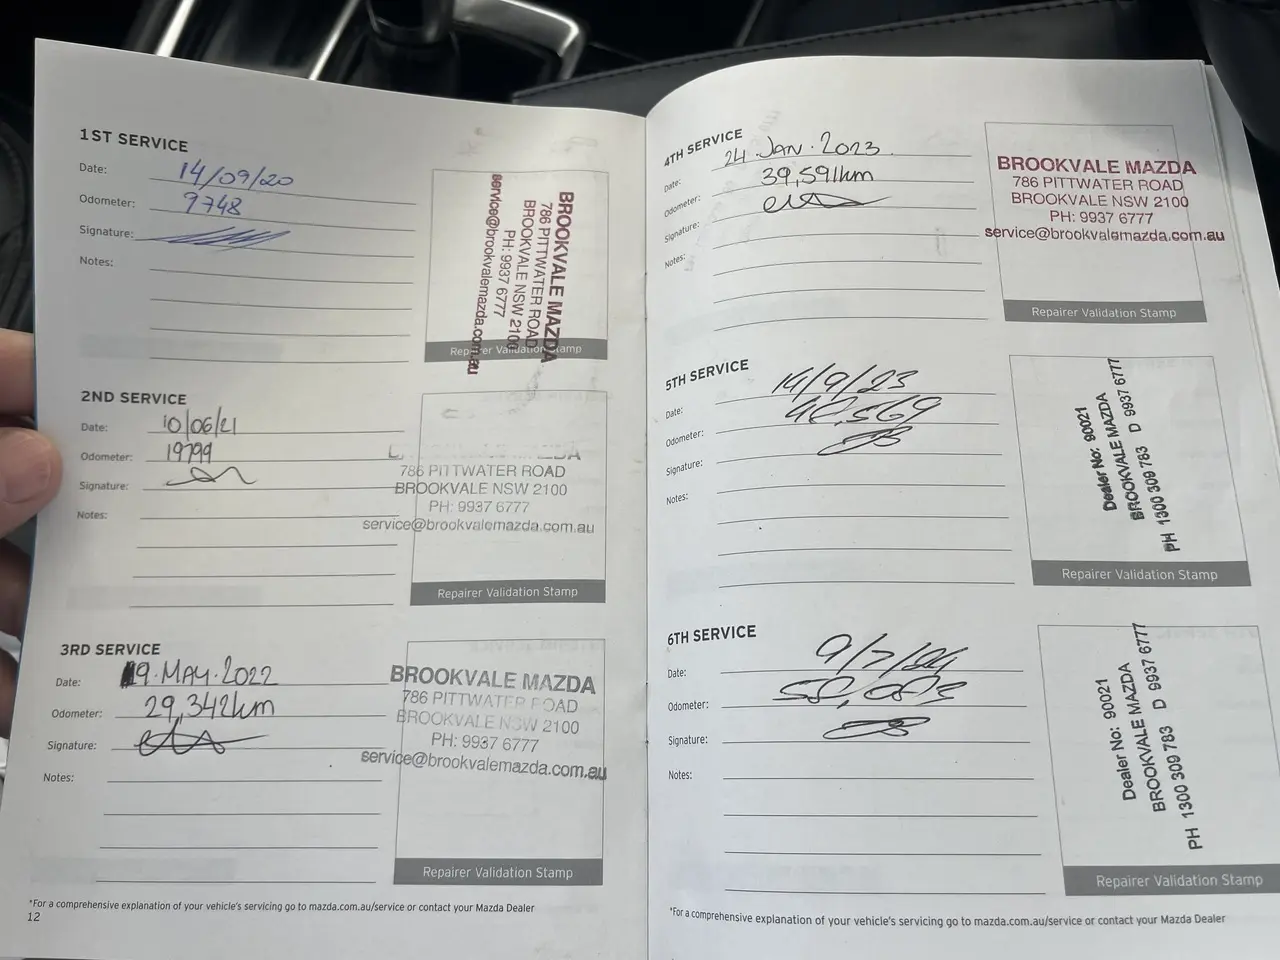 1ST SERVICE
Date: 14/09/20
Odometer: 9748
Signature:
Notes:
BROOKVALE MAZDA
786 PITTWATER ROAD
BROOKVALE NSW 2100
PH: 9937 6777
service@brookvalemazda.com.au
Repairer Validation Stamp
2ND SERVICE
Date: 10/06/21
Odometer: 19799
Signature:
Notes:
786 PITTWATER ROAD
BROOKVALE NSW 2100
PH: 9937 6777
service@brookvalemazda.com.au
Repairer Validation Stamp
3RD SERVICE
Date: 19.MAY.2022
Odometer: 29,342km
Signature:
Notes:
BROOKVALE MAZDA
786 PITTWATER ROAD
BROOKVALE NSW 2100
PH: 9937 6777
service@brookvalemazda.com.au
Repairer Validation Stamp
*For a comprehensive explanation of your vehicle's servicing go to mazda.com.au/service or contact your Mazda Dealer
12
4TH SERVICE
Date: 24 JAN.2023
Odometer: 39,591km
Signature:
Notes:
BROOKVALE MAZDA
786 PITTWATER ROAD
BROOKVALE NSW 2100
PH: 9937 6777
service@brookvalemazda.com.au
Repairer Validation Stamp
5TH SERVICE
Date: 14/9/23
Odometer:
Signature:
Notes:
Dealer No: 90021
BROOKVALE MAZDA
PH 1300 309 783 D 9937 6777
Repairer Validation Stamp
6TH SERVICE
Date: 9/7/24
Odometer:
Signature:
Notes:
Dealer No: 90021
BROOKVALE MAZDA
PH 1300 309 783 D 9937 6777
Repairer Validation Stamp
*For a comprehensive explanation of your vehicle's servicing go to mazda.com.au/service or contact your Mazda Dealer